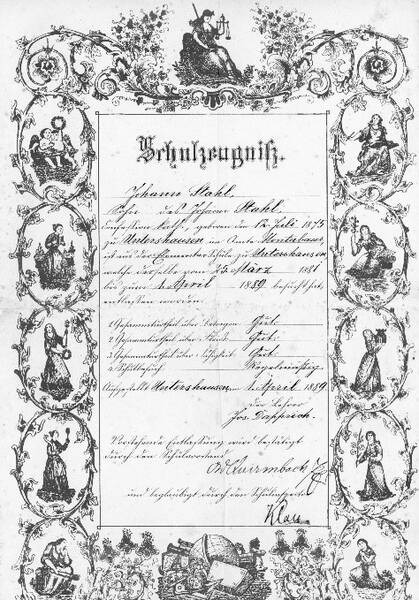 Schulzeugniß.
Johann Stahl,
Sohn des Johann Stahl
Confession kath., geboren den 12. Juli 1875
zu Untershausen im Amte Montabaur
ist aus der Elementarschule zu Untershausen
welche derselbe vom 25. März 1881
bis zum 1. April 1889 besucht hat,
entlassen worden.
1. Gesammturtheil über Betragen Gut.
2. Gesammturtheil über Gut.
3. Gesammturtheil über Gut.
4. Schulbesuch Regelmäßig
Ausgestellt Untershausen, den 1. April 1889
der Lehrer
Jos.
Vorstehende Entlassung wird bestätigt
durch den Schulvorstand
und beglaubigt durch den Schulinspector